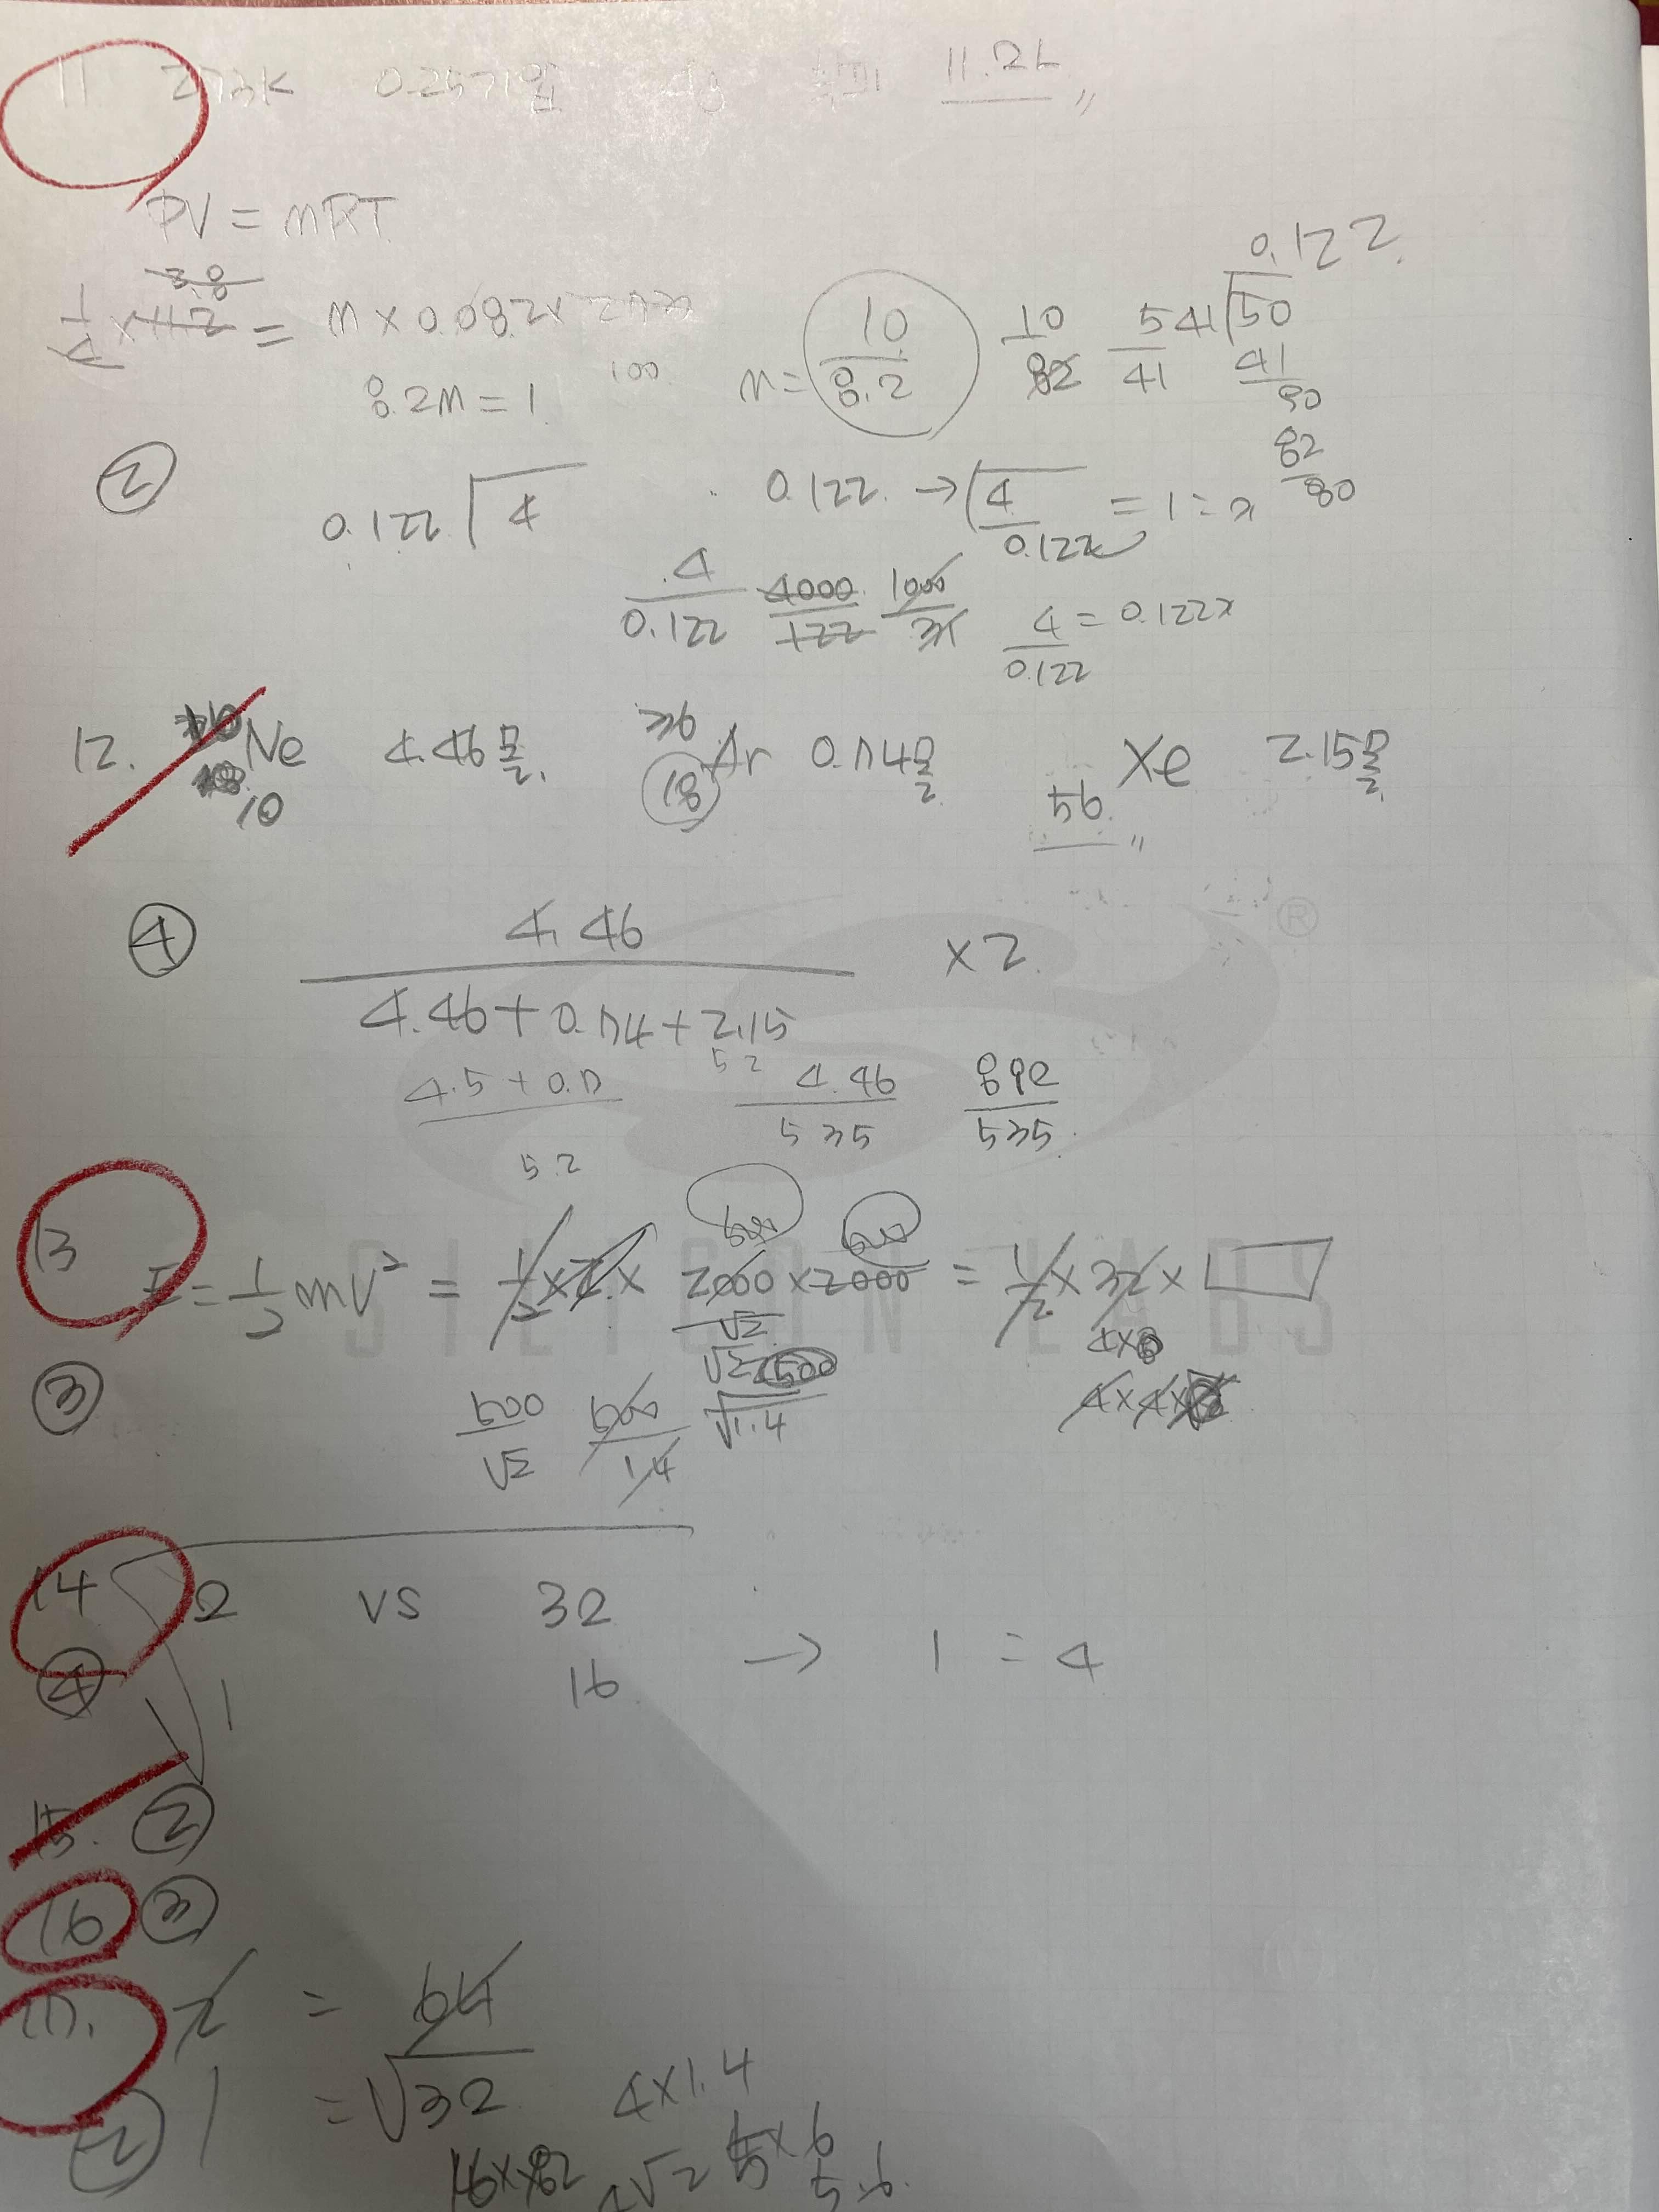 11 273K 0.25기압 4g 11.2L
PV = nRT
3.8
1/4 × 11.2 = n × 0.082 × 273
8.2n = 1 100 n = 10/8.2 10/82 5/41 41√50 0.122
41
90
82
80
② 0.122√4 0.122 → √4/0.122 = 1 : x
4/0.122 4000/122 1000/31 4/0.122 = 0.122x
12. Ne 4.46몰. Ar 0.74몰 Xe 2.15몰
10 18 56
④ 4.46 / 4.46 + 0.74 + 2.15 × 2
4.5 + 0.7 5.2 4.46/535 892/535
5.2
SILICON LABS ®
13 E = 1/2 mv² = 1/2 × 2 × 2000 × 2000 = 1/2 × 32 ×
√2 4×8
③ 500/√2 500/1.4 √2 500/√1.4
14 2 vs 32
④ 1 16 → 1 : 4
15. ②
16 ③
17. 2 = 64
② 1 = √32 4×1.4
5.6